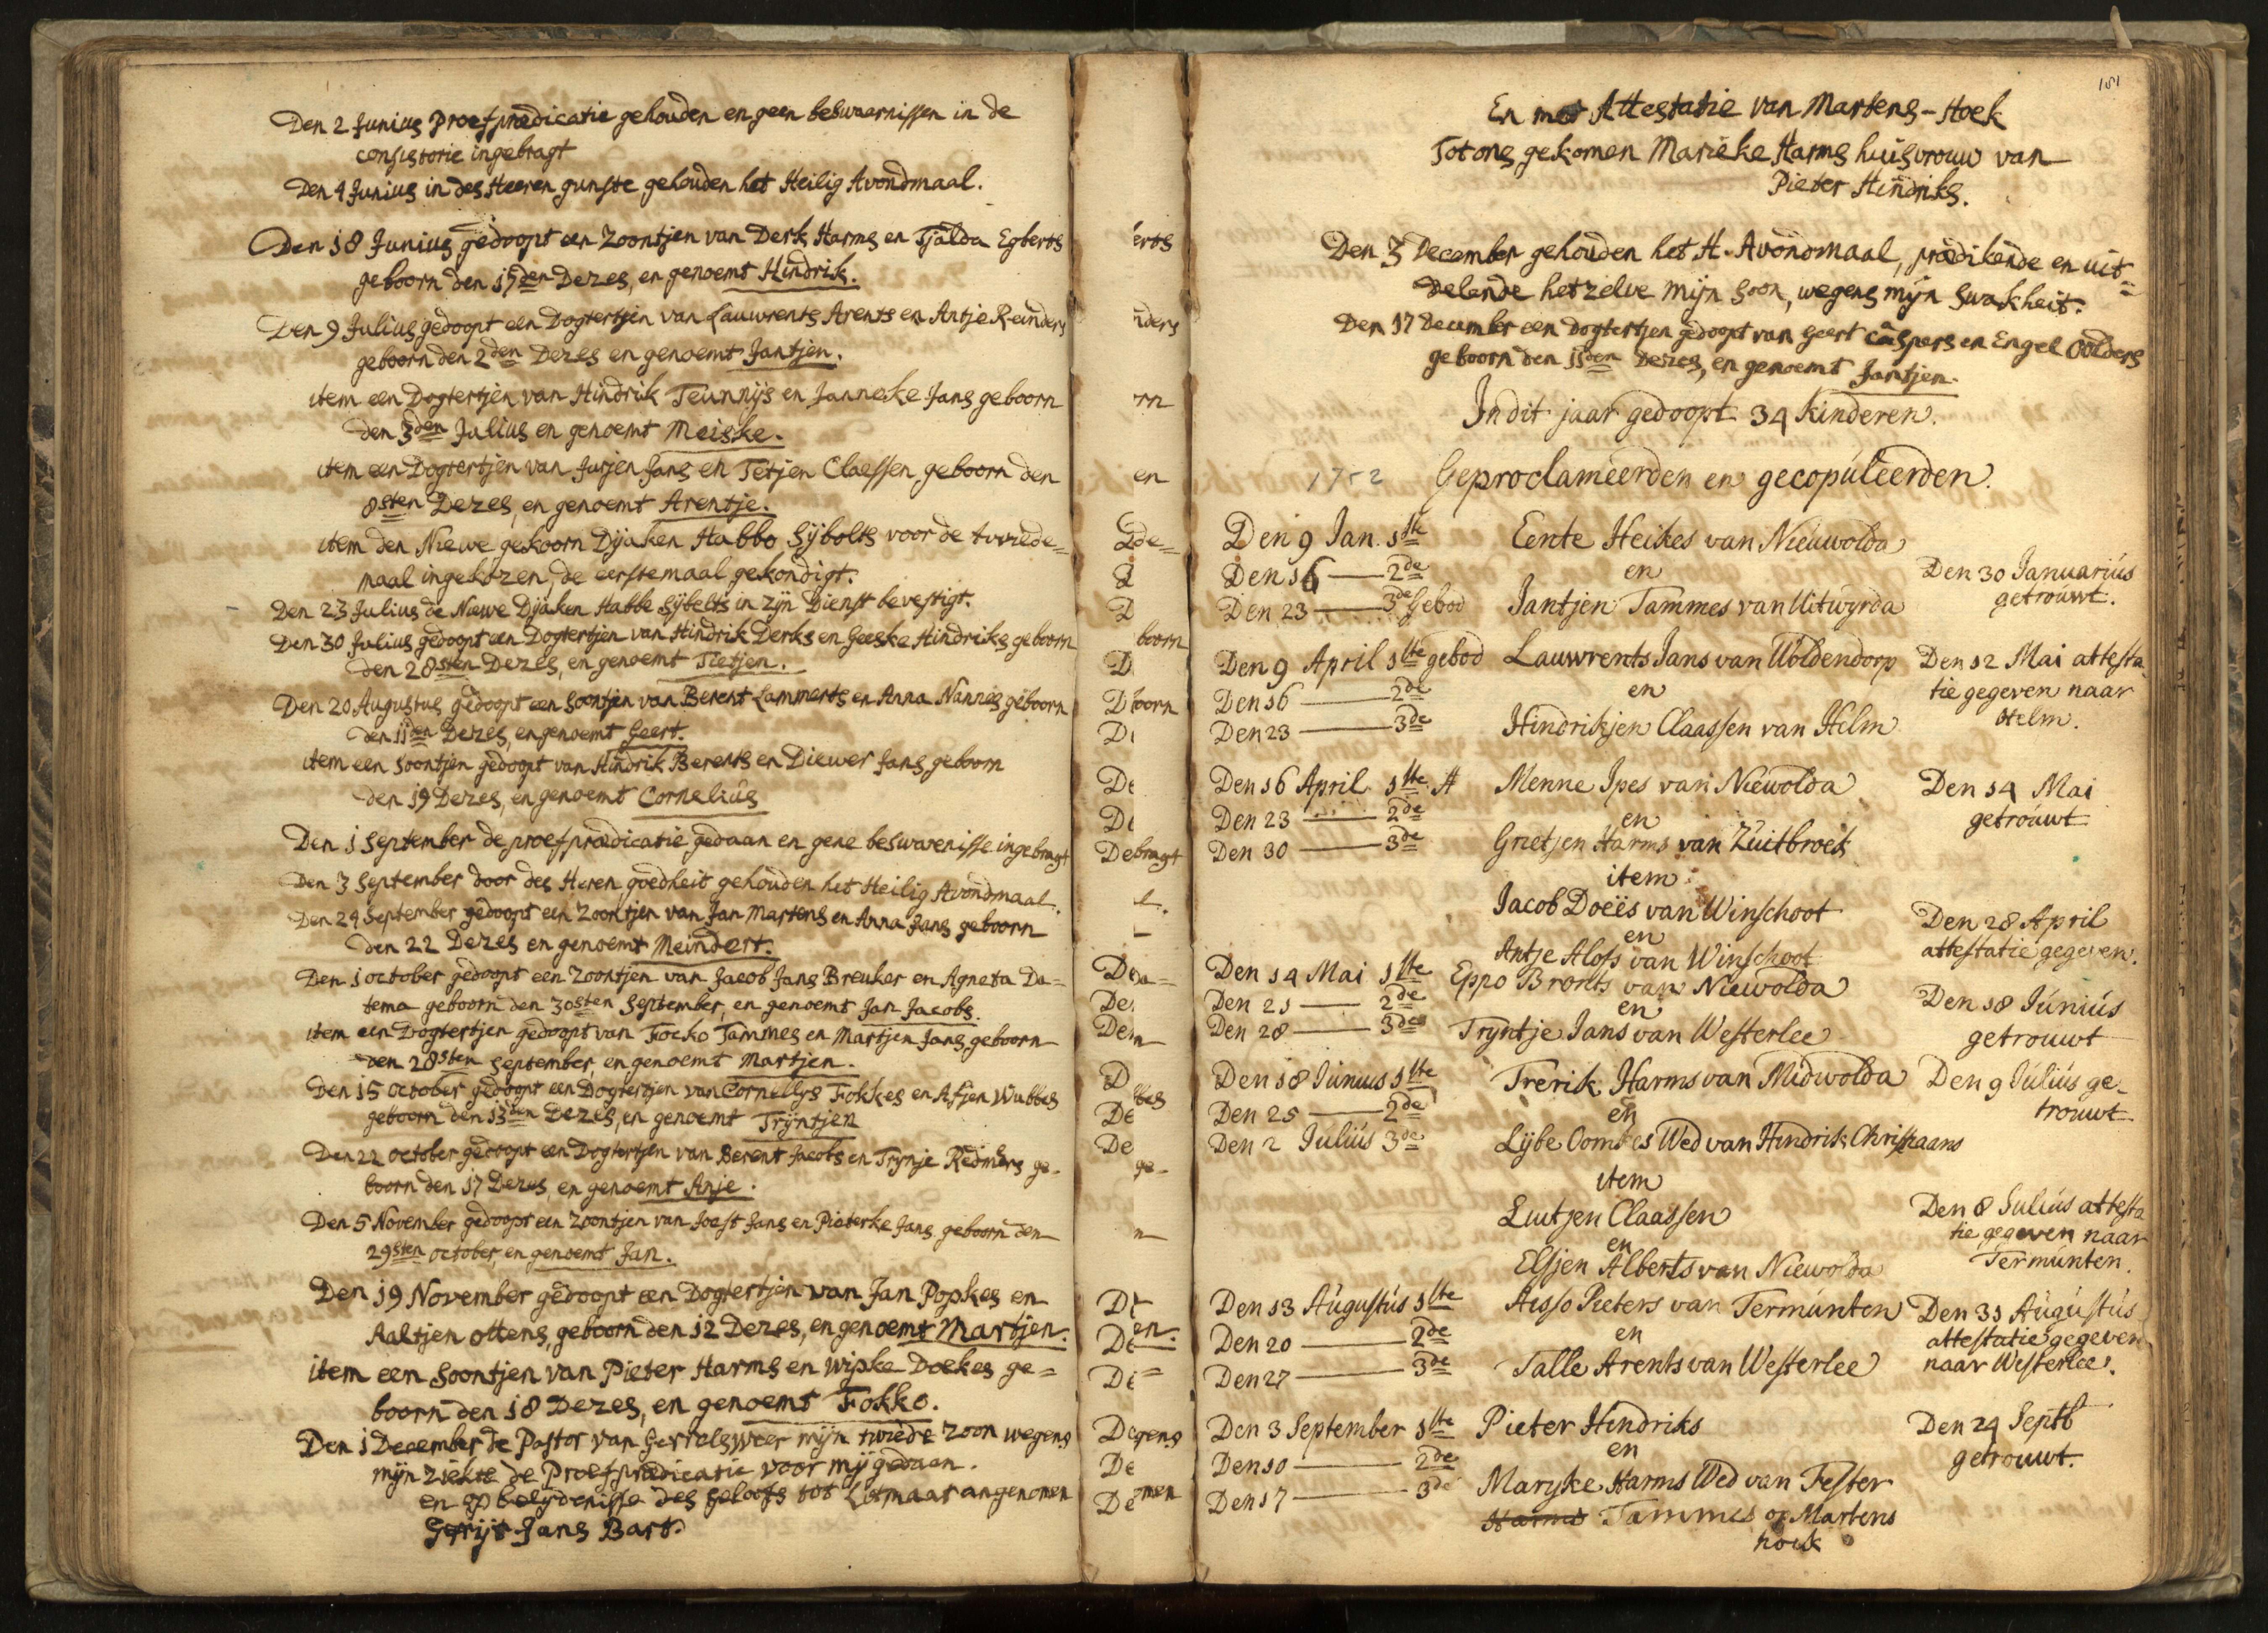 Den 2 Junius Proefprædicatie gehouden en geen beswaarnissen in de
consistorie ingebragt
Den 4 Junius in des Heeren gunste gehouden het Heilig Avondmaal.
Den 18 Junius gedoopt een Zoontjen van Derk Harms en Tjalda Egberts
geboorn den 17den Dezes, en genoemt Hindrik.
Den 9 Julius gedoopt een Dogtertjen van Lauwrents Arents en Antje Reinders
geboorn den 2den Dezes en genoemt Jantjen.
item een Dogtertjen van Hindrik Teunnijs en Janneke Jans geboorn
den 3den Julius en genoemt Meiske.
item een Dogtertjen van Jurjen Jans en Tetjen Claessen geboorn den
8sten Dezes, en genoemt Arentje.
item den Niewe gekoorn Dijaken Habbo Sijbolts voor de tweede=
maal ingekozen, de eerstemaal gekondigt.
Den 23 Julius de Niewe Dijaken Habbe Sijbelts in zijn Dienst bevestigt.
Den 30 Julius gedoopt een Dogtertjen van Hindrik Derks en Geeske Hindriks geboorn
den 28sten Dezes, en genoemt Tietjen.
Den 20 Augustus gedoopt een Soontjen van Berent Lammerts en Anna Nannes geboorn
den 11den Dezes, en genoemt Geert.
item een Soontjen gedoopt van Hindrik Berents en Diewer Jans, geboorn
den 19 Dezes, en genoemt Cornelius
Den 1 September de proefprædicatie gedaan en gene beswarenisse ingebragt
Den 3 September door des Heren goedheit gehouden het Heilig Avondmaal.
Den 24 September gedoopt een Zoontjen van Jan Martens en Anna Jans geboorn
den 22 Dezes en genoemt Meindert.
Den 1 October gedoopt een Zoontjen van Jacob Jans Breuker en Agneta Da=
tema geboorn den 30sten September, en genoemt Jan Jacobs.
item een Dogtertjen gedoopt van Focko Tammes en Martjen Jans, geboorn
den 28sten September, en genoemt Martjen.
Den 15 October gedoopt een Dogtertjen van Cornellys Fokkes en Afjen Wubbes
geboorn den 13den Dezes, en genoemt Trijntjen
Den 22 October gedoopt een Dogtertjen van Berent Jacobs en Trynje Redmers ge-
boorn den 17 Dezes, en genoemt Anje.
Den 5 November gedoopt een Zoontjen van Joest Jans en Pieterke Jans geboorn den
29sten October, en genoemt Jan.
Den 19 November gedoopt een Dogtertjen van Jan Popkes en
Aaltjen Ottens, geboorn den 12 Dezes, en genoemt Martjen.
item een Soontjen van Pieter Harms en Wipke Doekes ge=
boorn den 18 Dezes, en genoemt Fokko.
Den 1 December de Pastor van mijn twede Zoon wegens
mijn ziekte de Proefprædicatie voor mij gedaan.
en op belydenisse des geloofs tot Lidmaat angenomen
Gerrijt Jans Bart.
181
En met Attestatie van Martens-Hoek
Tot ons gekomen Marieke Harms huisvrouw van
Pieter Hindriks.
Den 3 December gehouden het H. Avondmaal, prædikende en uit=
delende het zelve mijn Soon, wegens mijn Swakheit.
Den 17 December een Dogtertjen gedoopt van Geert Caspers en Engel Oolders
geboorn den 11den Dezes, en genoemt Jantjen.
In dit jaar gedoopt 34 kinderen.
1752 Geproclameerden en gecopuleerden.
Den 9 Jan. 1ste Eente Heikes van Nieuwolda
Den 16 — 2de en Den 30 Januarius
Den 23 — 3de Gebod Jantjen Tammes van Uitwyrda getrouwt.
Den 9 April 1ste gebod Lauwrents Jans van Woldendorp Den 12 Mai attesta
Den 16 — 2de en tie gegeven naar
Den 23 — 3de Hindrikjen Claassen van Helm Helm.
Den 16 April 1ste A Menne Ipes van Niewolda Den 14 Mai
Den 23 — 2de en getrouwt
Den 30 — 3de Grietjen Harms van Zuitbroek
item
Jacob Doeïs van Winschoot Den 28 April
en attestatie gegeven.
Antje Alofs van Winschoot
Den 14 Mai 1ste Eppo Bronts van Niewolda
Den 21 — 2de en Den 18 Junius
Den 28 — 3de Tryntje Jans van Westerlee getrouwt
Den 18 Junius 1ste Frerik Harms van Midwolda Den 9 Julius ge-
Den 25 — 2de en trouwt
Den 2 Julius 3de Lijbe Oomkes Wed van Hindrik Christiaans
item
Luitjen Claassen Den 8 Julius attesta
en tie gegeven naar
Elsjen Alberts van Niewolda Termunten.
Den 13 Augustus 1ste Aisso Pieters van Termunten Den 31 Augustus
Den 20 — 2de en attestatie gegeven
Den 27 — 3de Talle Arents van Westerlee naar Westerlee.
Den 3 September 1ste Pieter Hindriks Den 24 Septb
Den 10 — 2de en getrouwt.
Den 17 — 3de Maryke Harms Wed van Fester
Harms Tammes op Martens
hoek